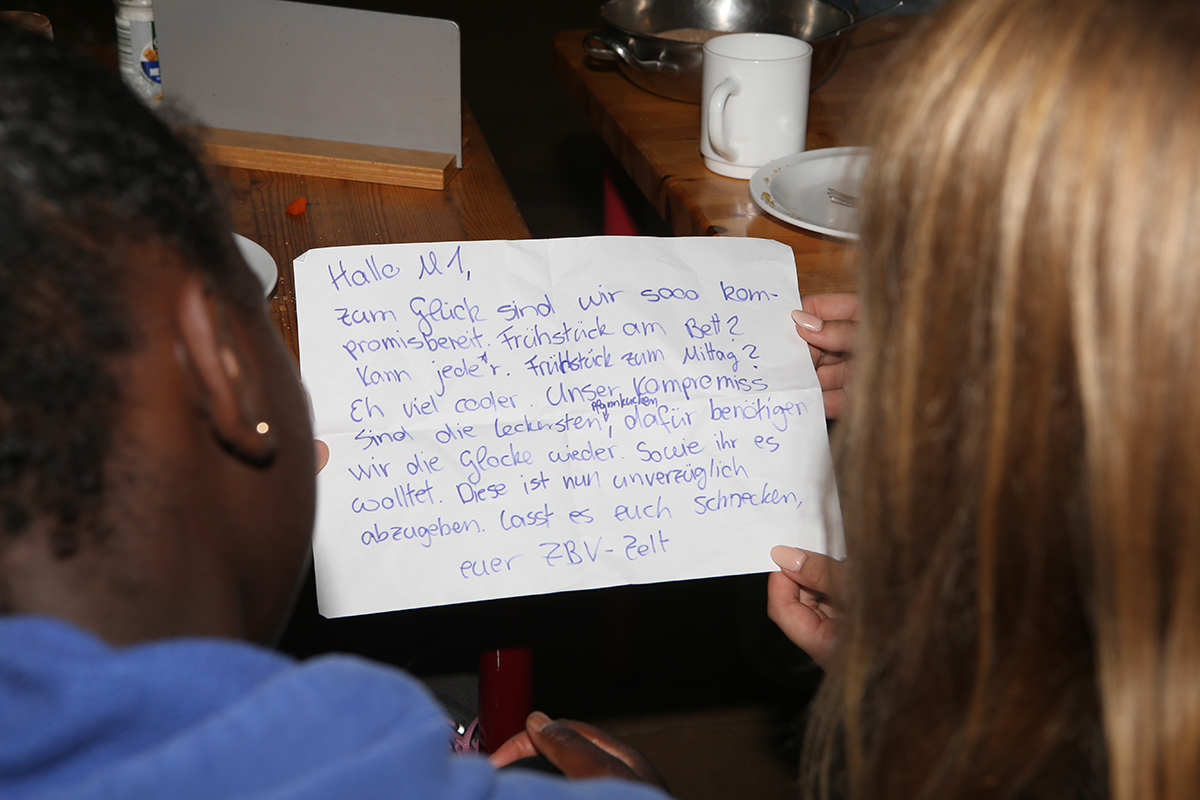 Hallo M1,
zum Glück sind wir sooo kom-
promisbereit. Frühstück am Bett?
Kann jede*r. Frühstück zum Mittag?
Eh viel cooler. Unser Kompromiss
sind die leckersten Pfannkuchen, dafür benötigen
wir die Glocke wieder. Sowie ihr es
wolltet. Diese ist nun unverzüglich
abzugeben. Lasst es euch schnecken,
euer ZBV-Zelt